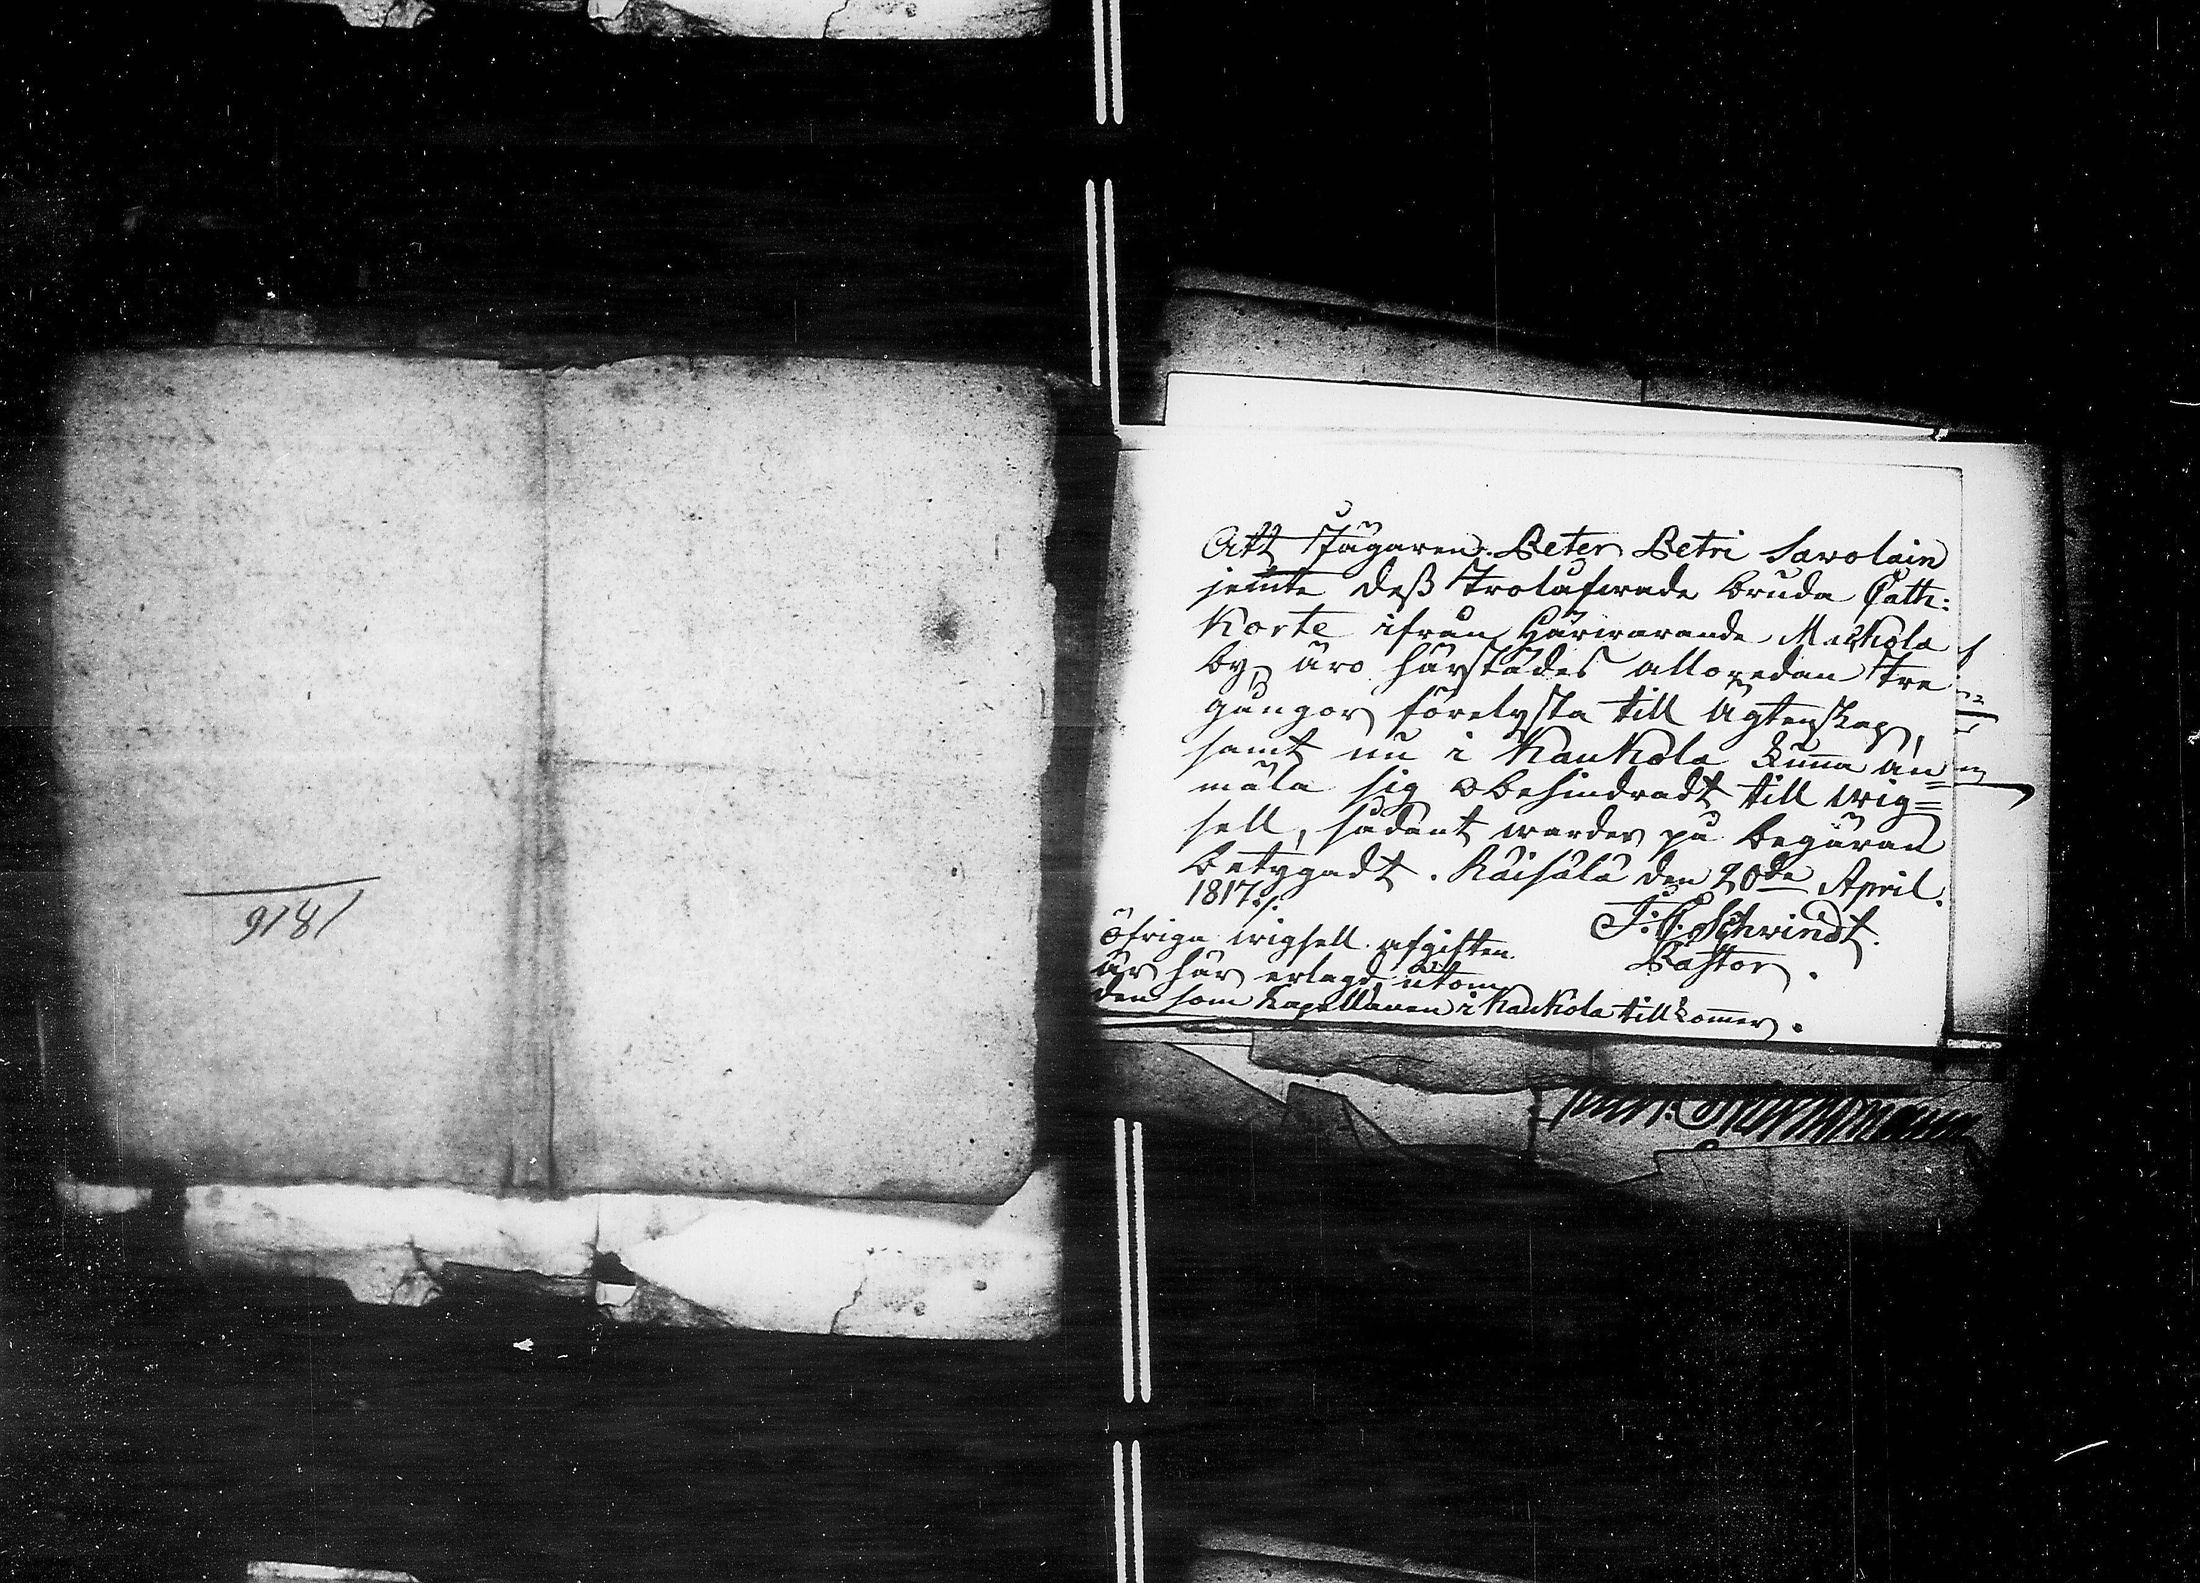 1816
Att Jägaren Peter Petri Sawolain
jemte deß trolåfwade bruda Cath:
Korte ifrån härwarande Mackola
by, äro härstädes alloredan tre
gångor förelysta till Ägtenskap,
samt nu i Kaukola kunna an=
mäla sig obehindradt till wig=
sell, sådant warder på begäran
betygadt. Räisälä den 20de April.
1817:/.
Schwindt.
Pastor.
öfriga wigsell afgiften
är här erlagd, utom
den som kapellanen i Kaukola tillkommer.